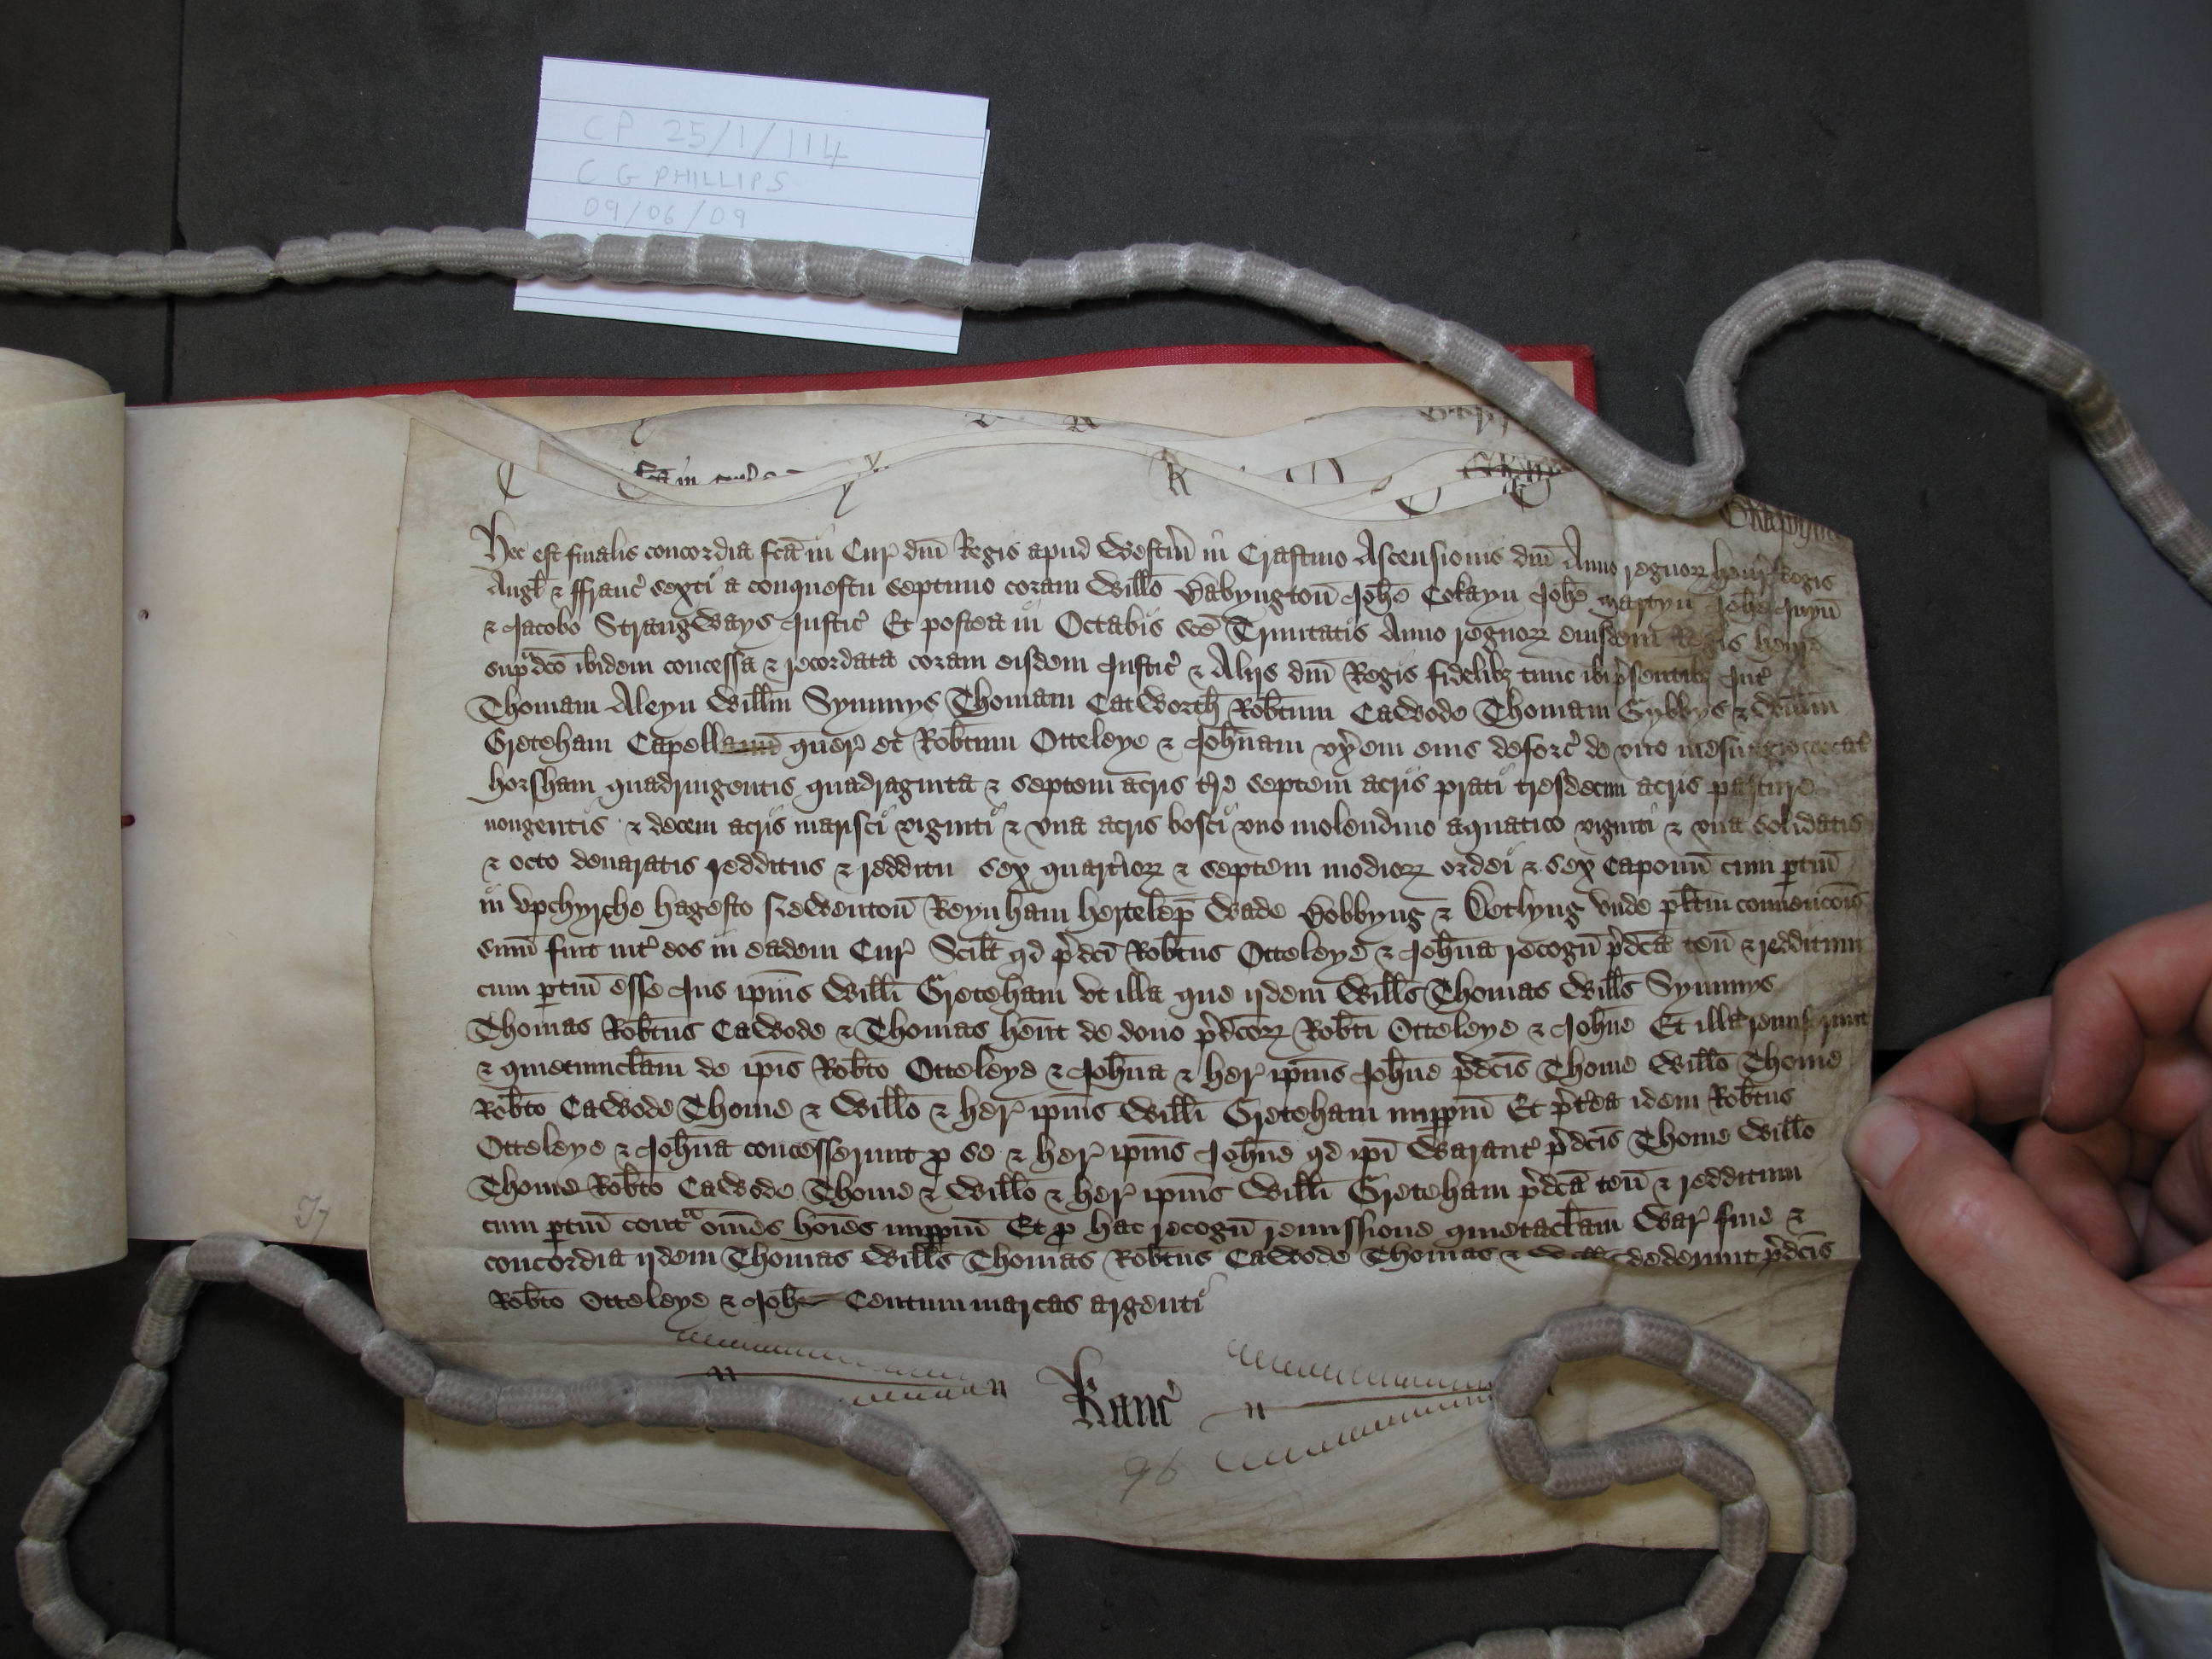 CP 25/1/114
C G PHILLIPS
09/06/09
Hec est finalis concordia fcā in Cur̄ dn̄i Regis apud Westm̄ in Crastino Ascensionis dn̄i Anno regnoꝝ Henr̄ Regis
Angl̄ ⁊ ffranc̄ sexti a conquestu septimo coram Will̄o Babyngton̄ Joh̄e Cokayn Joh̄e Martyn Joh̄e Juyn̄
⁊ Jacobo Strangways Justic̄ Et postea in Octabis sc̄e Trinitatis Anno regnoꝝ eiusdem Regis Henr̄
supᵃdc̄o ibidem concessa ⁊ recordata coram eisdem Justic̄ ⁊ Alijs dn̄i Regis fidelibȝ tunc ibi p̄sentibȝ Int̄
Thomam Aleyn Will̄m Symmys Thomam Catworth̄ Rob̄tum Cawode Thomam Gybbys ⁊ Will̄m
Greteham Capellanū quer̄ et Rob̄tum Otteleye ⁊ Joh̄nam vx̄em eius deforc̄ de vno mesuagio vocat̄
Horsham quadringentis quadraginta ⁊ septem acris t̄re septem acris prati tresdecim acris pasture
nongentis ⁊ decem acris marisci viginti ⁊ vna acris bosci vno molendino aquatico viginti ⁊ vna solidatis
⁊ octo denaratis redditus ⁊ redditu sex quart̄ioꝝ ⁊ septem modioꝝ ordei ⁊ sex caponū cum ꝑtin̄
in Vpchyrche Hagesto Newenton̄ Reynham Hertelep̄ Wade Bobbyng ⁊ Dethyng vnde pl̄itm conuencōis
sum̄ fuit int̄ eos in eadem Cur̄ Scil̄t qd p̄dc̄i Rob̄tus Otteleye ⁊ Joh̄na recogn̄ p̄dc̄a ten̄ ⁊ redditum
cum ꝑtin̄ esse Jus ip̄ius Will̄i Greteham vt illa que ijdem Will̄s Thomas Will̄s Symmys
Thomas Rob̄tus Cawode ⁊ Thomas hēnt de dono p̄dc̄oꝝ Rob̄ti Otteleye ⁊ Joh̄ne Et illa remiserunt
⁊ quietumclam̄ de ip̄is Rob̄to Otteleye ⁊ Joh̄na ⁊ her̄ ip̄ius Joh̄ne p̄dc̄is Thome Will̄o Thome
Rob̄to Cawode Thome ⁊ Will̄o ⁊ her̄ ip̄ius Will̄i Greteham imꝑpm̄ Et p̄t̄ea idem Rob̄tus
Otteleye ⁊ Joh̄na concesserunt ꝓ se ⁊ her̄ ip̄ius Joh̄ne qd ip̄i Warant̄ p̄dc̄is Thome Will̄o
Thome Rob̄to Cawode Thome ⁊ Will̄o ⁊ her̄ ip̄ius Will̄i Greteham p̄dc̄a ten̄ ⁊ redditum
cum ꝑtin̄ contᵃ om̄es hōies imꝑpm̄ Et ꝓ hac recogn̄ remissione quietaclam̄ War̄ fine ⁊
concordia ijdem Thomas Will̄s Thomas Rob̄tus Cawode Thomas ⁊ Will̄s dederunt p̄dc̄is
Rob̄to Otteleye ⁊ Joh̄ne Centum marcas argenti
Kanc̄
96